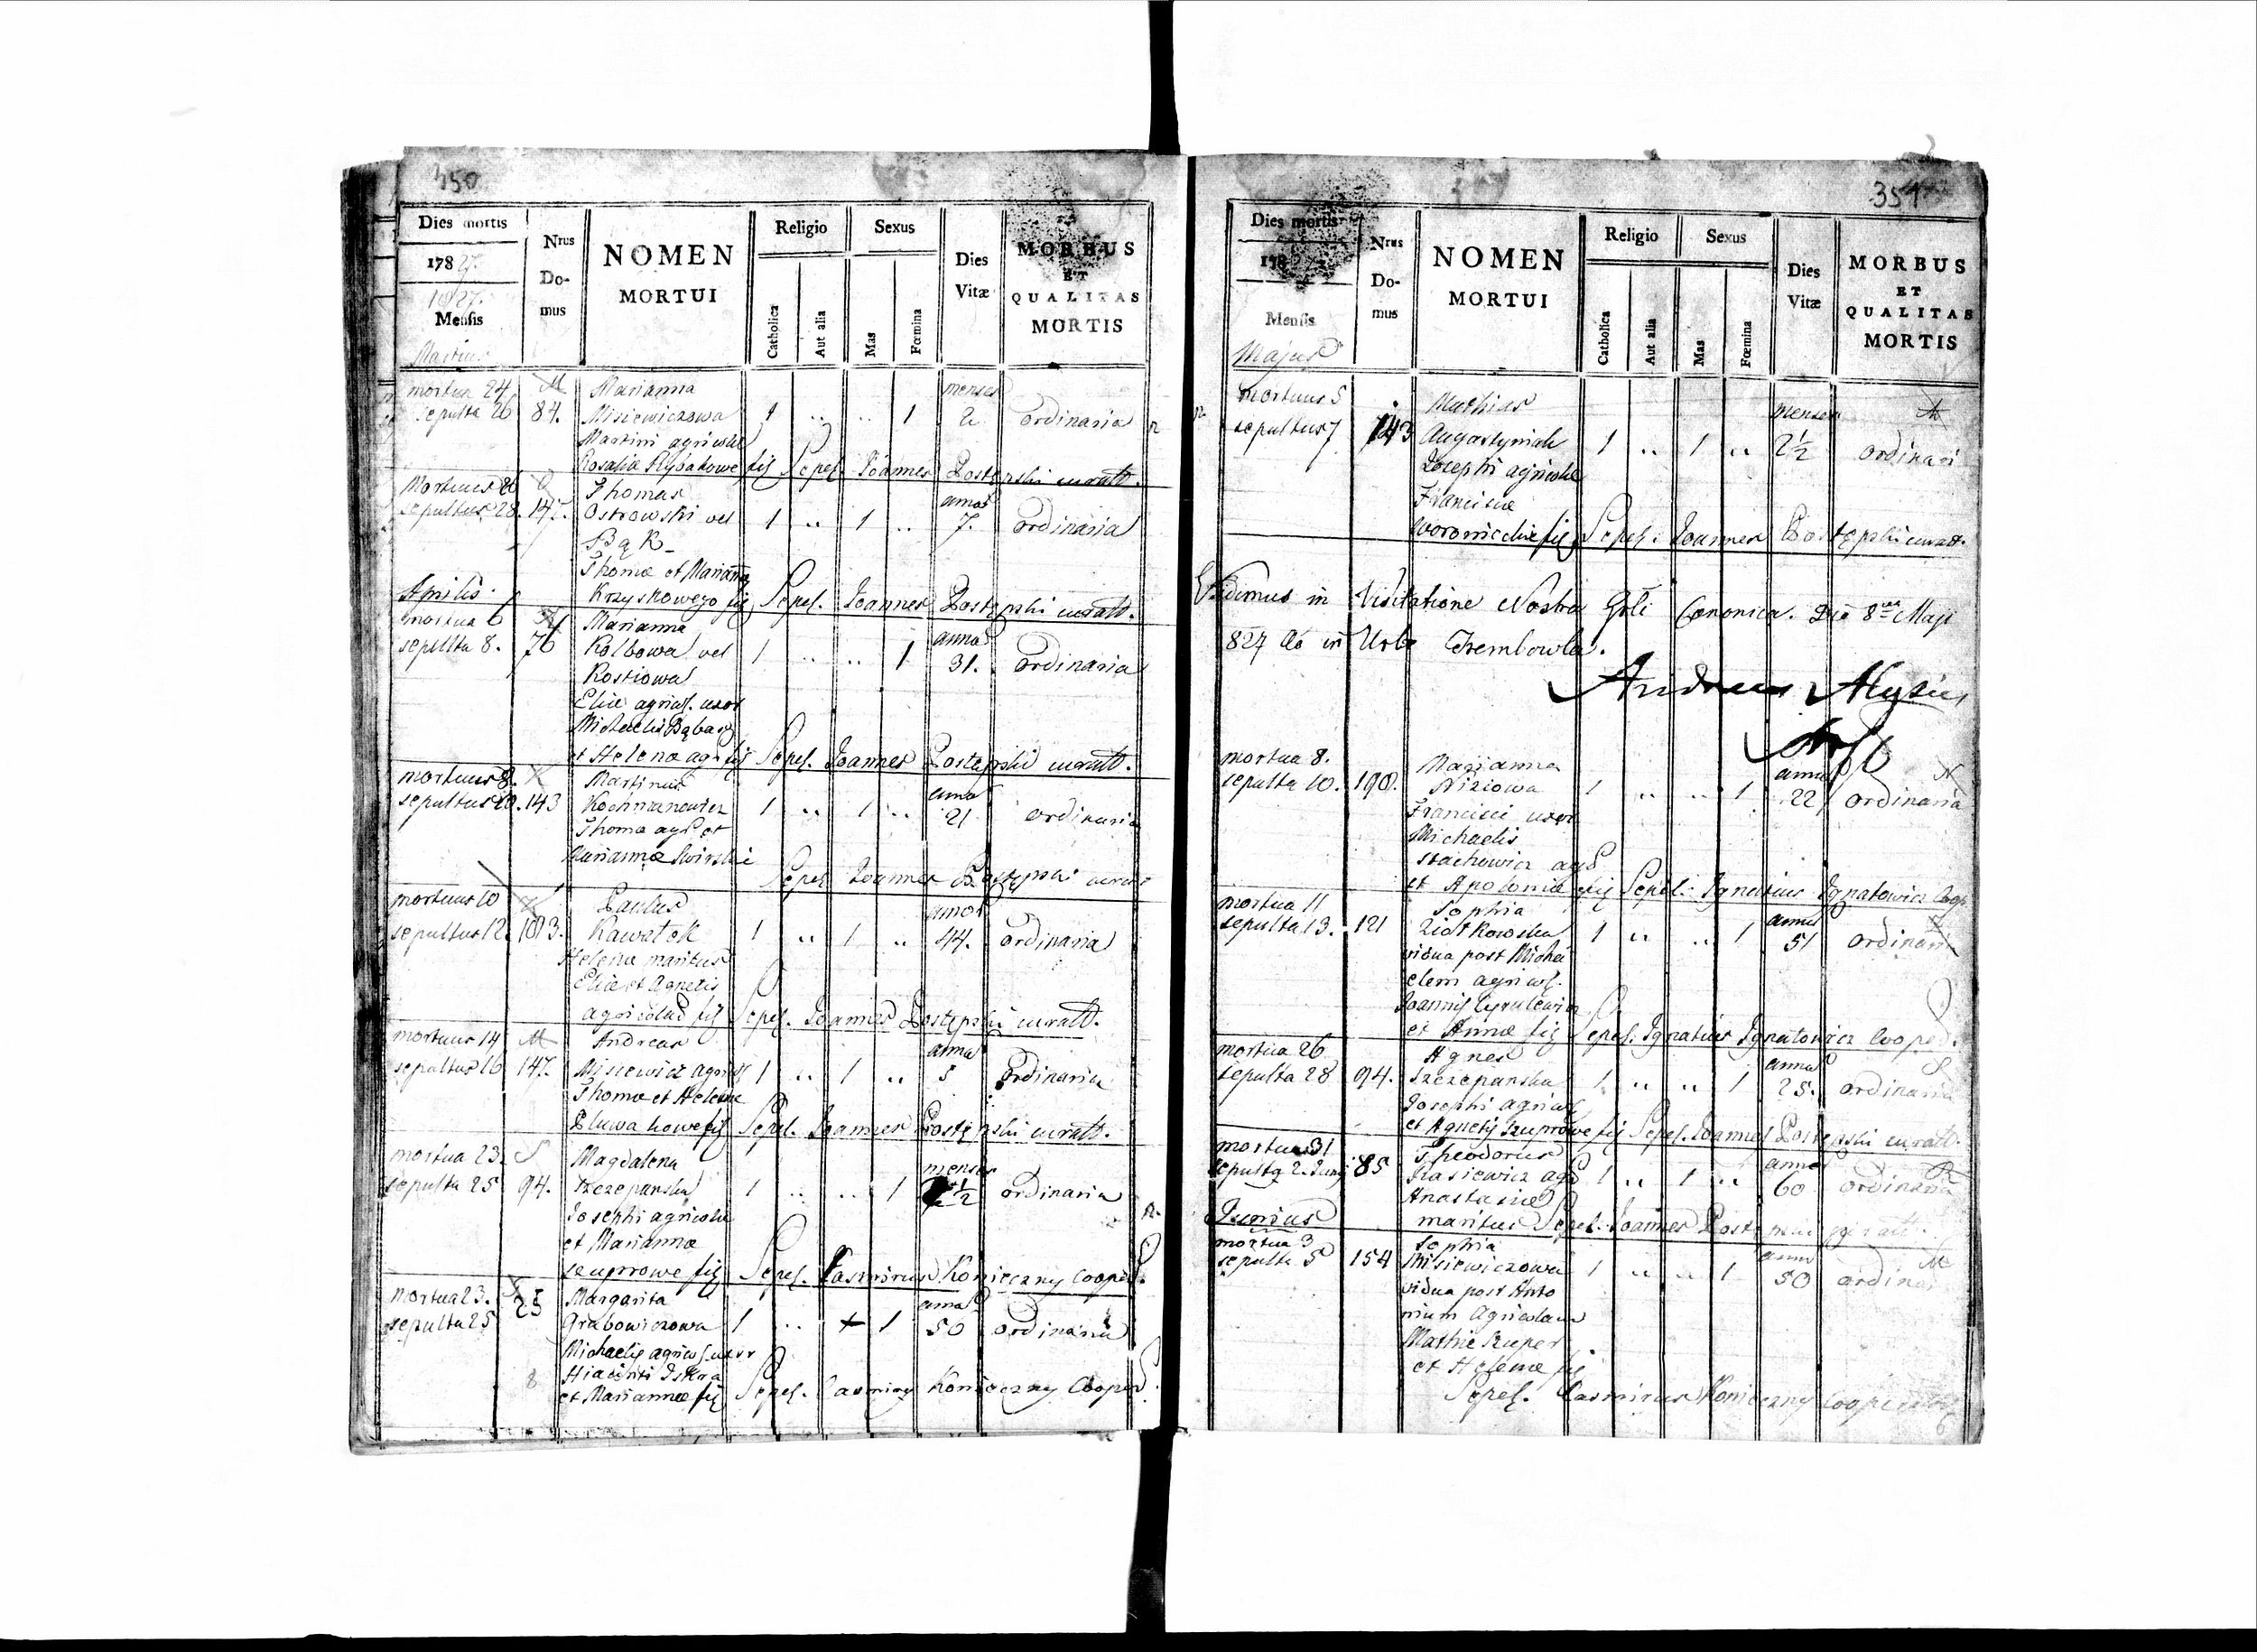 350
Dies mortis
178
1827.
Mensis
Martius
Nrus
Do-
mus
NOMEN
MORTUI
Religio
Catholica
Aut alia
Sexus
Mas
Fœmina
Dies
Vitæ
MORBUS
ET
QUALITAS
MORTIS
mortua 24 M Marianna menses
sepulta 26 84. Misiewiczowa 1 .. .. 1 2 ordinaria
Martini agricolæ
Rosaliæ Rybakowe fig Sepel. Joannes Postępski curatt.
Mortuus 26 O Thomas annos
sepultus 28. 147. Ostrowski vel 1 .. 1 .. 7. ordinaria
Bąk
Thomæ et Marianna
Krzyskowego fig Sepel. Joannes Postępski curatt.
Aprilis
mortua 6 Marianna annos
sepulta 8. 76 Kolbowa vel 1 .. .. 1 31. ordinaria
Kostiowa
Eliæ agricol. uxor
Michaelis
et Helenæ agr. fig Sepel. Joannes Postępski curatt.
mortuus 8. Martinus anno
sepultus 10. 143 Kochmanowicz 1 .. 1 .. 21 ordinaria
Thoma agr. et
Mariannæ Swirski
Sepel. Joannes Postępski curatt
mortuus 10 Paulus annos
sepultus 12. 103. Kawałek 1 .. 1 .. 44. ordinaria
Helenæ maritus
Eliæ et Agnetis
agricolas fig Sepel. Joannes Postępski curatt.
mortuus 14 M Andreas anna
sepultus 16 147. Misiewicz agricol 1 .. 1 .. 5 ordinaria
Thomæ et Helenæ
fig Sepel. Joannes Postępski curatt.
mortua 23. S Magdalena menses
sepulta 25 94. Szczepanska 1 .. .. 1 1/2 ordinaria
Josephi agricolæ
et Mariannæ
Szuprowe fig Sepel. Casmirus Konieczny Cooper.
mortua 23. Margarita anna
sepulta 25 25 Grabowiczowa 1 .. 1 50 ordinaria
Michaelis agricol. uxor
Hiacinti Iskra
et Mariannæ fig Sepel. Casmirus Konieczny Cooper.
351
Dies mortis
178
Mensis
Majus
Nrus
Do-
mus
NOMEN
MORTUI
Religio
Catholica
Aut alia
Sexus
Mas
Fœmina
Dies
Vitæ
MORBUS
ET
QUALITAS
MORTIS
mortuus 5 Mathias menses
sepultus 7 143 Augustyniak 1 .. 1 .. 2 1/2 ordinari
Josephi agricolæ
Franciscæ
fig Sepel. Joannes Postępski curatt.
Vidimus in Visitatione Nostra Gńli Canonica. Die 8va Maji
827 in Urbe Trembowla.
Andreas Aloysius
mortua 8. Marianna anna N
sepulta 10. 190. Niziowa 1 .. .. 1 22 ordinaria
Francisci uxor
Michaelis
Stachowicz agr
et Apoloniæ fig Sepel. Ignatius Ignatowicz Coop
mortua 11 Sophia anna
sepulta 13. 121 Ziołkowska 1 .. .. 1 51 ordinari
vidua post Micha
elem agricol.
Joannis Cyrulewicz
et Annæ fig Sepel. Ignatius Ignatowicz Cooper.
mortua 26 Agnes anna S
sepulta 28 94. Szczepanska 1 .. .. 1 25. ordinaria
Josephi agricol
et Agnetis Szuprowe fig Sepel. Joannes Postępski curatt.
mortuus 31 Theodorus anna
sepulta 2. Junij 85 agr 1 .. 1 .. 60 ordinaria
Anastasiæ
maritus Sepel. Joannes
Junius
mortua 3 Sophia anna M
sepulta 5 154 Misiewiczowa 1 .. .. 1 50 ordina
vidua post Anto
nium Agricolam
Mathiæ Szuper
et Helenæ fig
Sepel. Casmirus Konieczny Cooperator